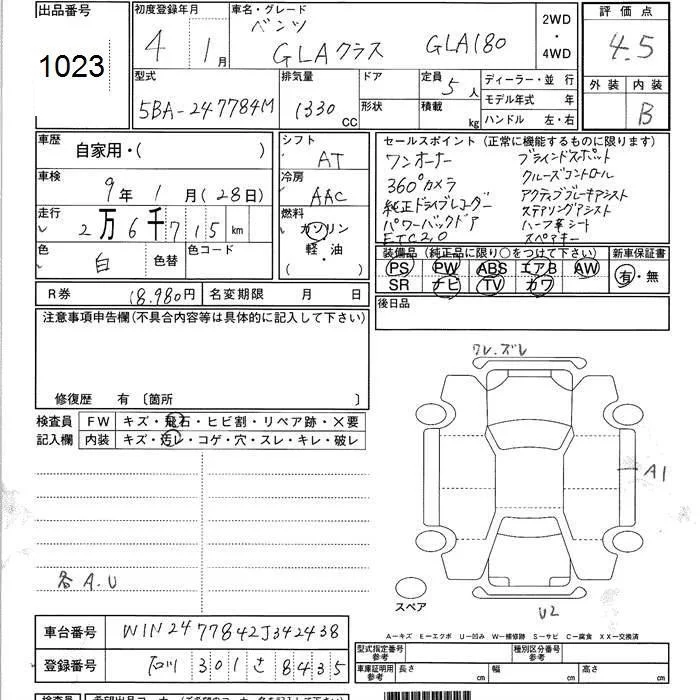 出品番号 初度登録年月 車名・グレード 2WD・4WD 評価点
1023 4年 1月 ベンツ GLAクラス GLA180 4.5
型式 排気量 ドア 定員 5人 ディーラー・並行 外装 内装
5BA-247784M 1330CC 形状 積載 kg モデル年式 年 B
ハンドル 左・右
車歴 自家用・( ) シフト AT セールスポイント (正常に機能するものに限ります)
車検 9年 1月 (28日) 冷房 AAC
ワンオーナー ブラインドスポット
360°カメラ クルーズコントロール
純正ドライブレコーダー アクティブブレーキアシスト
パワーバックドア ステアリングアシスト
ETC2.0 ハーフ革シート
スペアキー
走行 2万6千715km 燃料 ガソリン 軽・油 ( ・ )
色 白 色替 色コード
装備品 (純正品に限り○をつけて下さい) 新車保証書
PS PW ABS エアB AW 有・無
SR ナビ TV カワ
R券 18,980円 名変期限 月 日 後日品
注意事項申告欄(不具合内容等は具体的に記入して下さい)
修復歴 有 〔箇所 〕
ワレ.ズレ
検査員 FW キズ・飛石・ヒビ割・リペア跡・×要
記入欄 内装 キズ・汚レ・コゲ・穴・スレ・キレ・破レ
A1
各A.U
スペア
U2
車台番号 W1N2477842J342438
A－キズ E－エクボ U－凹み W－補修跡 S－サビ C－腐食 XX－交換済
登録番号 石川 301 さ 8435
型式指定番号 参考 種別区分番号 参考
車庫証明用 参考 長さ 幅 高さ